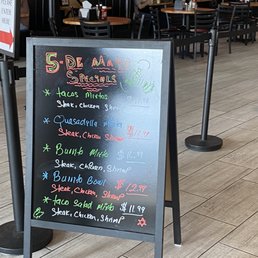 5-De Mayo
Specials
* tacos Mixtos
Steak, Chicken, Shrimp
* Quesadilla
Steak, Chicken, Shrimp
* Burrito Mixto
Steak, Chicken, Shrimp
* Burrito Bowl $12.99
Steak, Chicken, Shrimp
* taco Salad Mixto $11.99
Steak, Chicken, Shrimp